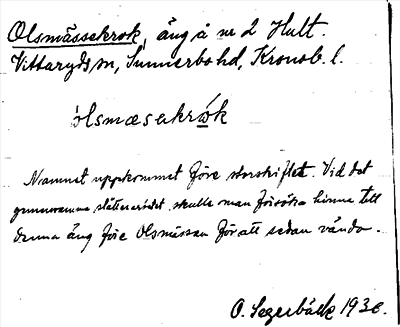 Olsmässekrok, äng å nr 2 Hult.
Vittaryds sn, Sunnerbo hd, Kronob. l.
ólsmæsakrωk
Namnet uppkommet före storskiftet. Vid det
gemensamma slåtterarbetet skulle man försöka hinna till
denna äng före Olsmässan för att sedan vända.
O. Segerbäck 1936.